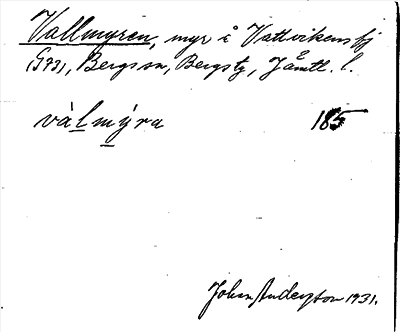 Vallmyren, myr å Vattvikens fj
G931, Bergs sn, Bergs tg, Jämtl. l.
vàl mýra 185
Johan Anderzson 1931.